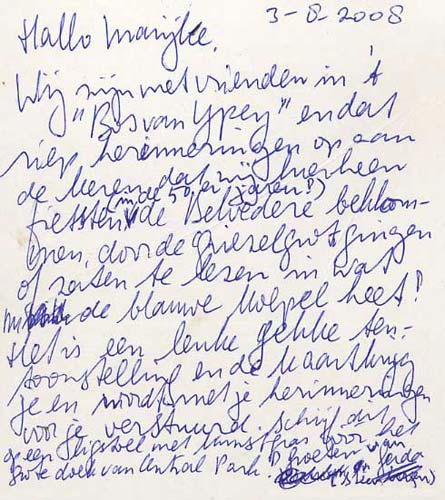 3-8-2008
Hallo Marijke,
Wij zijn met vrienden in 't
"Bos van Ypey" en dat
riep herinneringen op aan
de keren dat wij hierheen
(in de 50er jaren!)
fietsten, de Belvedere beklom-
men, door de Griezelgrot gingen
of zaten te lezen in wat
nu de blauwe koepel heet!
Het is een leuke gekke ten-
toonstelling en de kaart krijg
je en wordt met je herinneringen
voor je verstuurd. Schrijf dat
op een ligstoel met kunstgras voor het
grote doek van Central Park! Groeten van